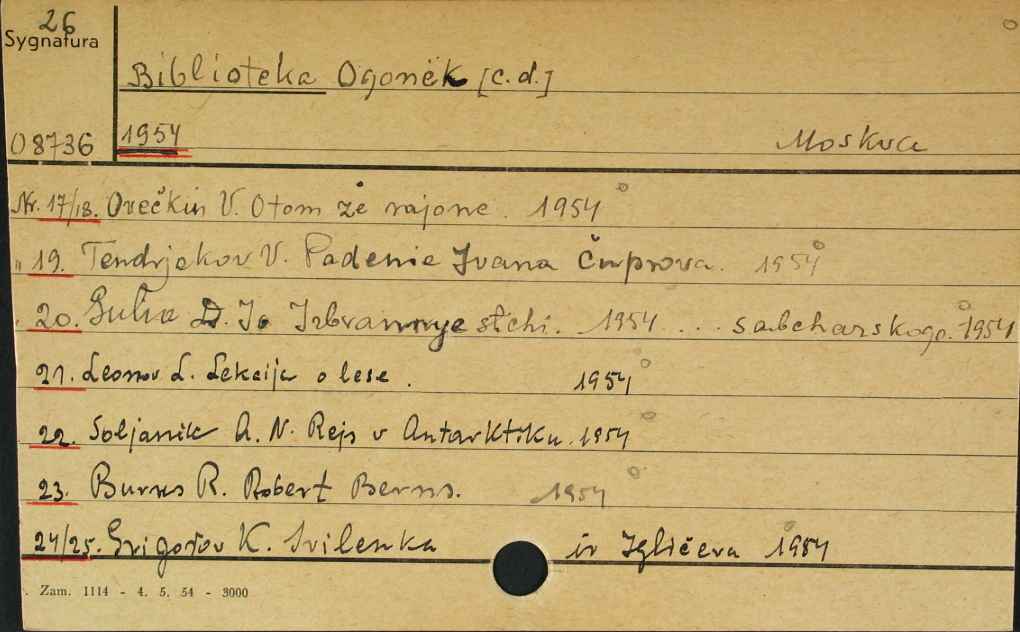 26
Sygnatura
Biblioteka Ogonëk [c.d.]
08736 1954 Moskva
Nr. 17/18. Ovečkin V. O tom že rajone. 1954
" 19. Tendrjakov V. Padenie Ivana Čuprova. 1954
20. Gulia D. I. Izbrannye stichi. 1954 . . . s abcharskogo. 1954
21. Leonov L. Lekcija o lese. 1954
22. Soljanik A. N. Rejs v Antarktiku. 1954
23. Burns R. Robert Berns. 1954
24/25. Grigorov K. Ivilenka iv Igličeva 1954
Zam. 1114 - 4. 5. 54 - 3000